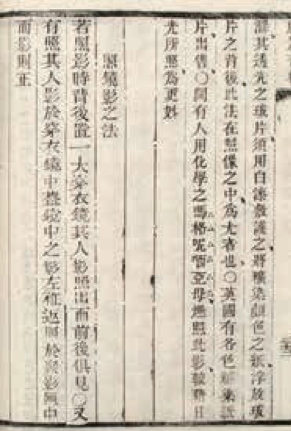 濕其透光之玻片須用白漆救護之將礦染顏色之紙浮放玻
片之背後此法在照像之中為尤善也〇英國有各色紙
片出售〇間有人用化學之瑪格呢唒亞母燃照此影較勝日
光所照為更妙
照鏡影之法
若照影時背後置一大穿衣鏡其人影照出而前後俱見〇又
有照其人影於穿衣鏡中蓋鏡中之影左右返而於照影匣中
而影則正